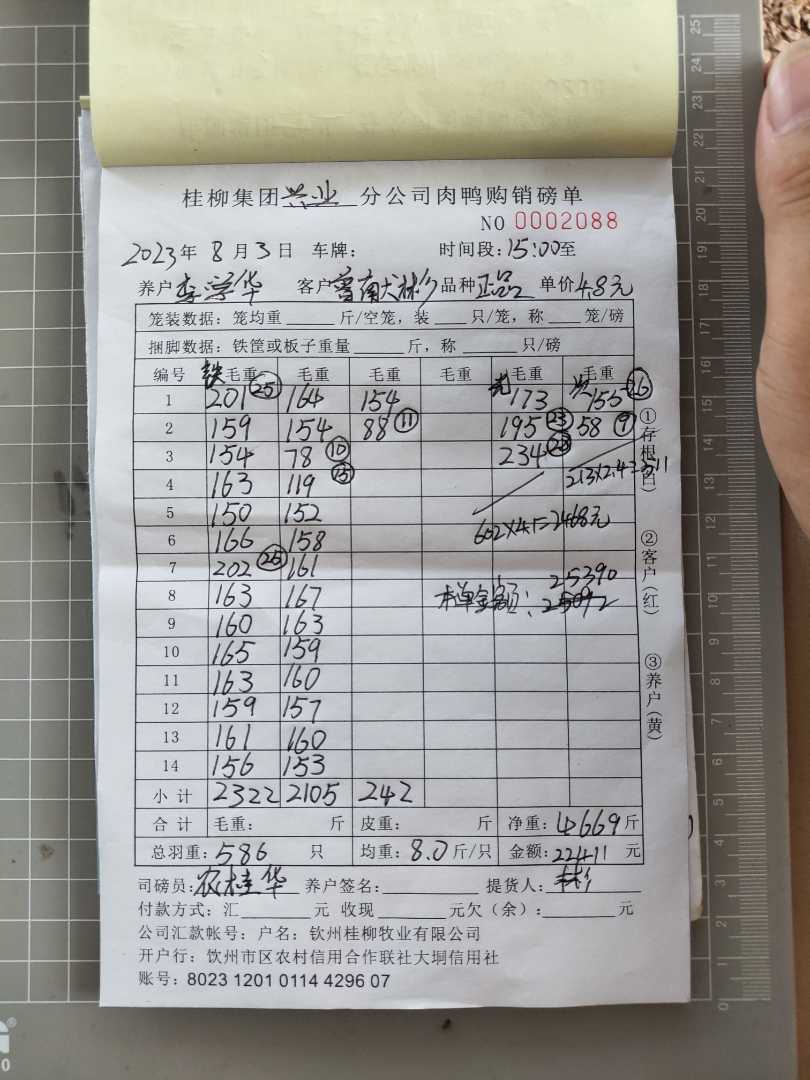 桂柳集团兴业分公司肉鸭购销磅单
NO 0002088
2023年8月3日 车牌: 时间段:15:00至
养户 华 客户 品种 正品 单价 4.8元
笼装数据: 笼均重 斤/空笼, 装 只/笼, 称 笼/磅
捆脚数据: 铁筐或板子重量 斤, 称 只/磅
编号 铁毛重 毛重 毛重 毛重 毛重 毛重
1 201 25 164 154 173 155 26
2 159 154 88 11 195 23 58 9
3 154 78 10 234 28
4 163 119 15 213×2.4=511
5 150 152 602×4.1=2468元
6 166 158
7 202 25 161 25390
8 163 167 本单金额: 25092
9 160 163
10 165 159
11 163 160
12 159 157
13 161 160
14 156 153
小计 2322 2105 242
合计 毛重: 斤 皮重: 斤 净重: 4669斤
总羽重: 586 只 均重: 8.0斤/只 金额: 22411 元
司磅员: 农桂华 养户签名: 提货人: 林彬
付款方式: 汇 元 收现 元欠(余): 元
公司汇款帐号: 户名: 钦州桂柳牧业有限公司
开户行: 饮州市区农村信用合作联社大垌信用社
账号: 8023 1201 0114 4296 07
①存根(白)
②客户(红)
③养户(黄)
25
24
23
22
21
20
19
18
17
16
15
14
13
12
11
10
9
8
7
6
5
4
3
2
1
0